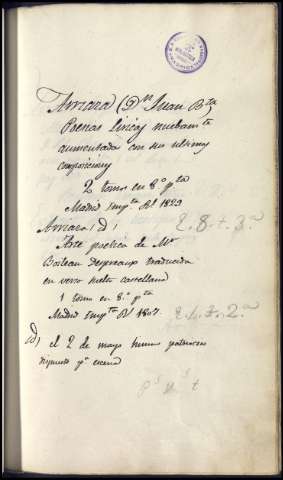 Arriaza (Dn Juan Bta
Poesias Liricas nuebamte
aumentada con sus ultimas
composiciones
2 tomos en 8º pta
Madrid Impta Rl 1829
Arriaza id
Arte poetica de Mr
Boileau Despreaux traducida
en verso suelto castellano
1 tomo en 8º pta
Madrid Impta Rl 1807
id, el 2 de mayo
dispuesto pa escena